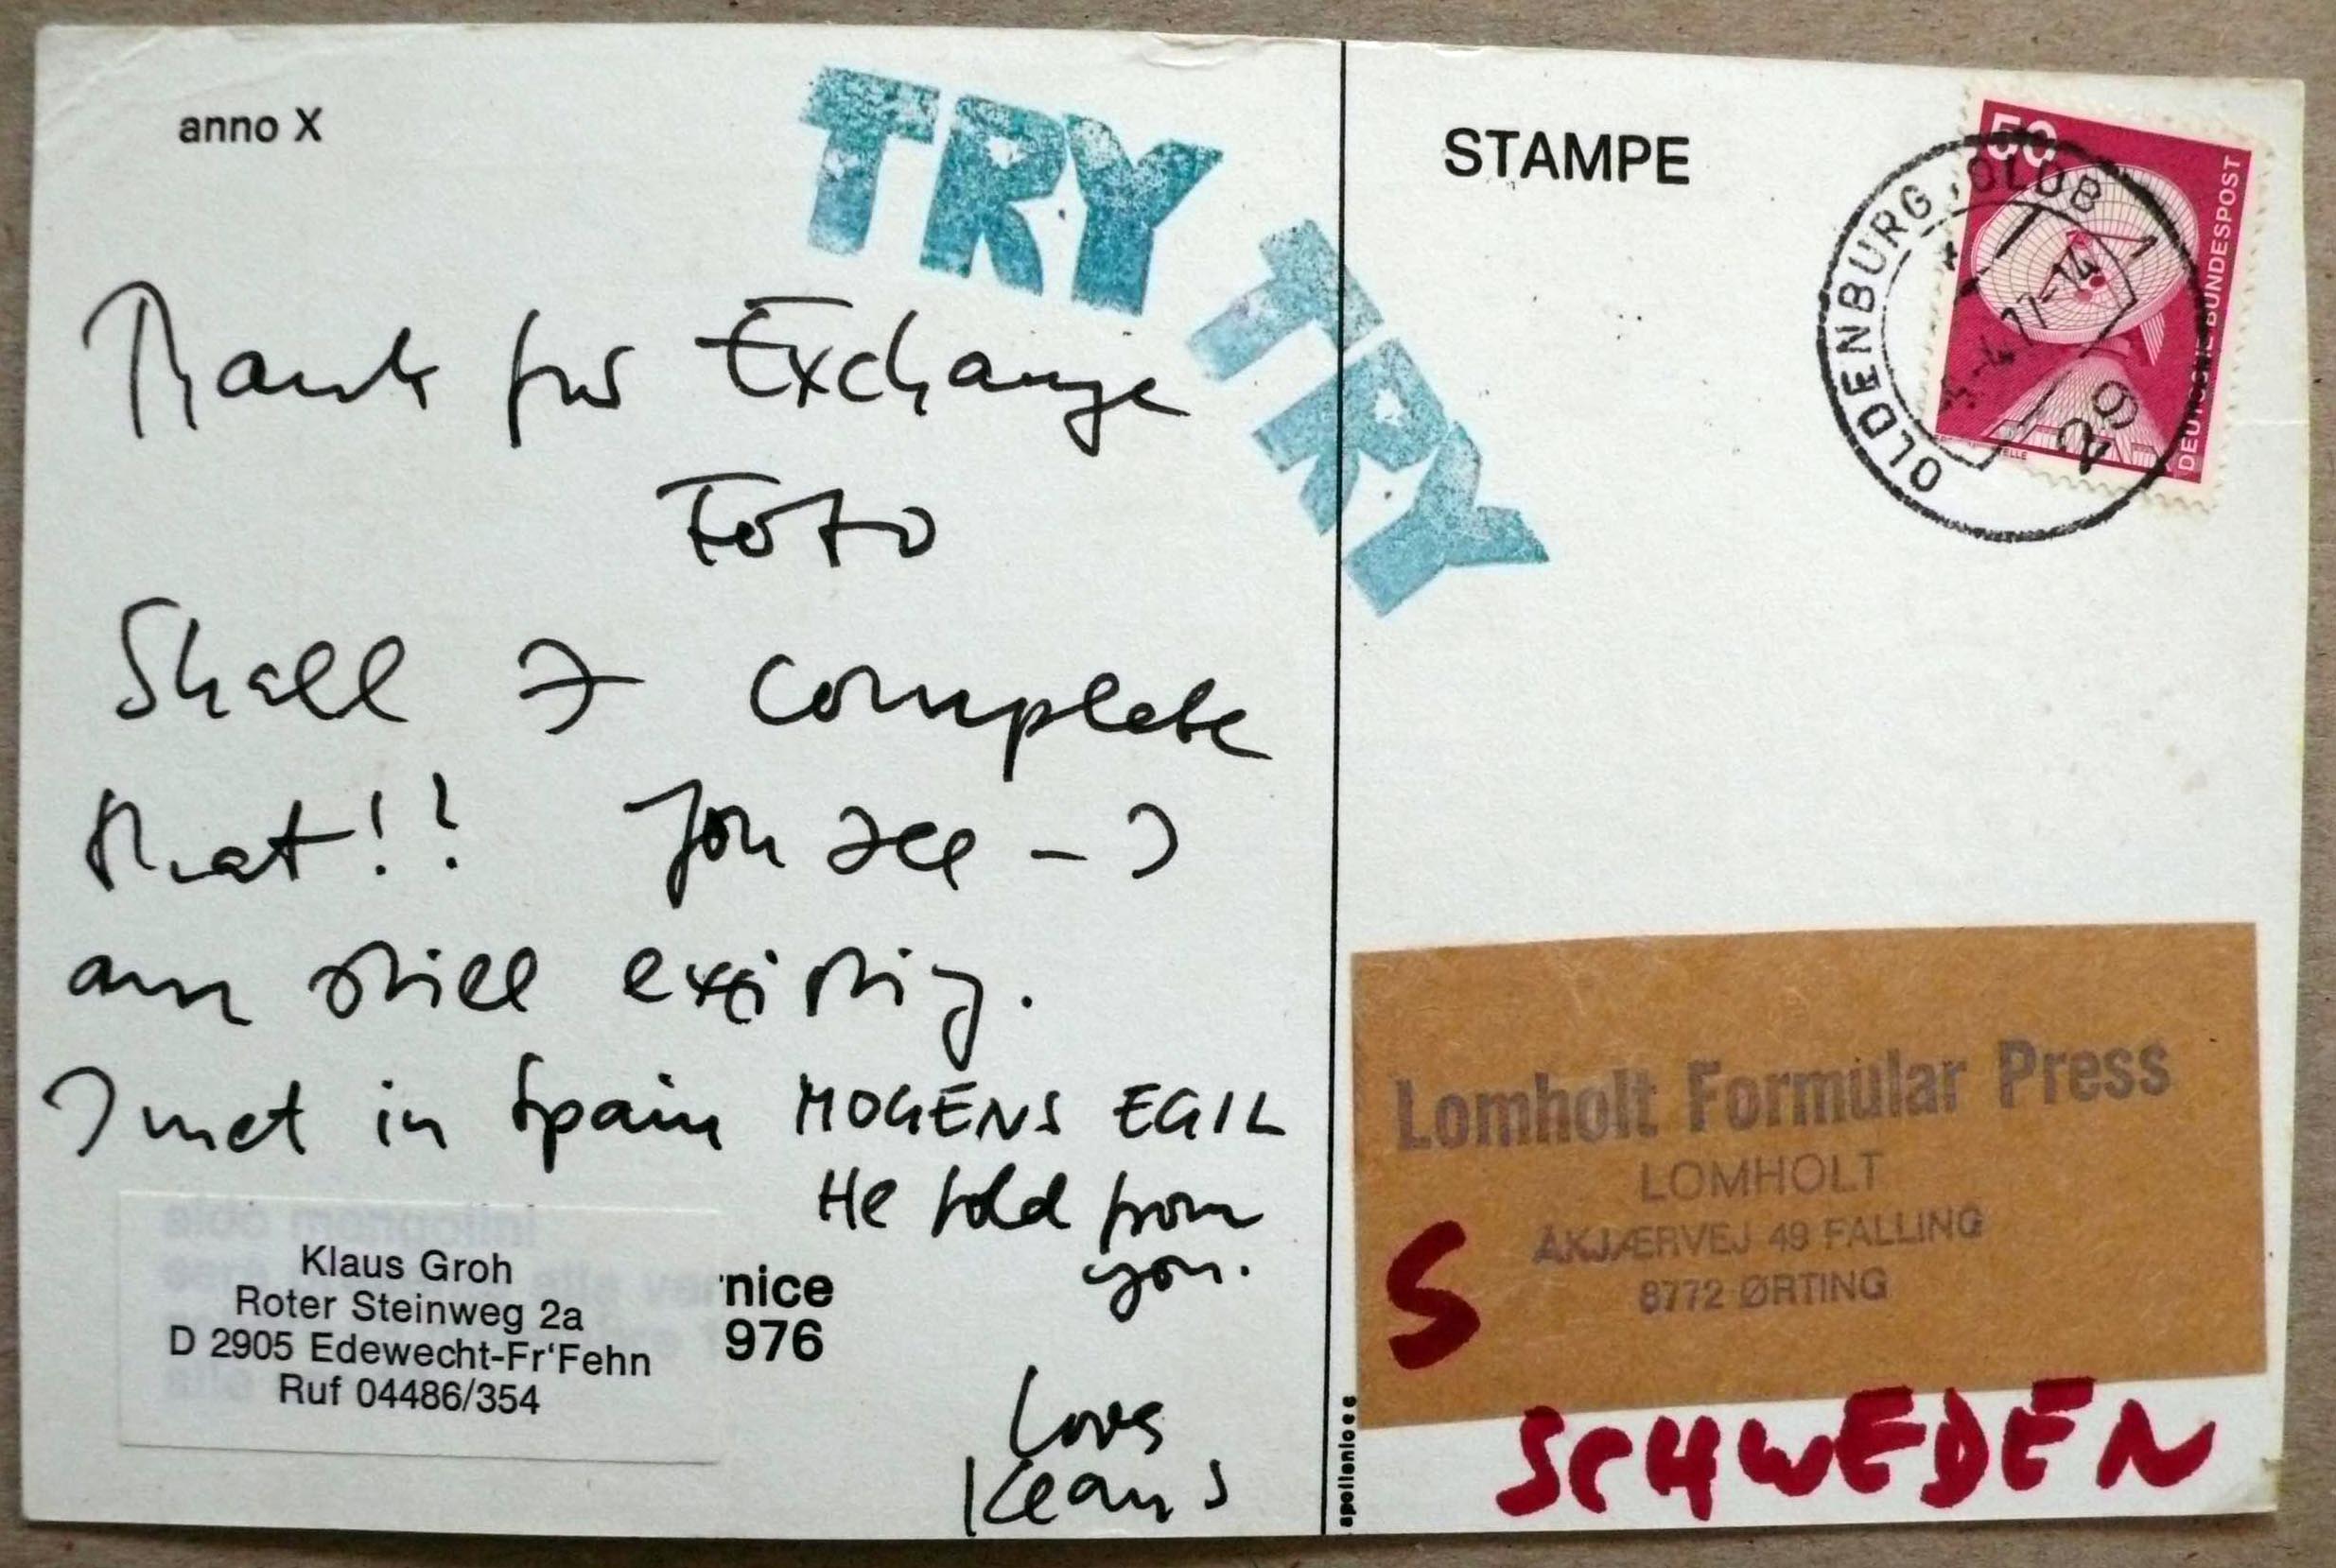 anno X
TRY
TRY
Thank for Exchange
Foto
Shall I complete
that!? You see – I
am still existig.
I met in Spain MOGENS EGIL
He told from
you.
Klaus Groh
Roter Steinweg 2a
D 2905 Edewecht-Fr'Fehn
Ruf 04486/354
nice
976
Love
Klaus
STAMPE
50
DEUTSCHE BUNDESPOST
OLDENBURG, OLDB 1
-4.77-14
29
Lomholt Formular Press
LOMHOLT
AKJÆRVEJ 49 FALLING
8772 ØRTING
S
SCHWEDEN